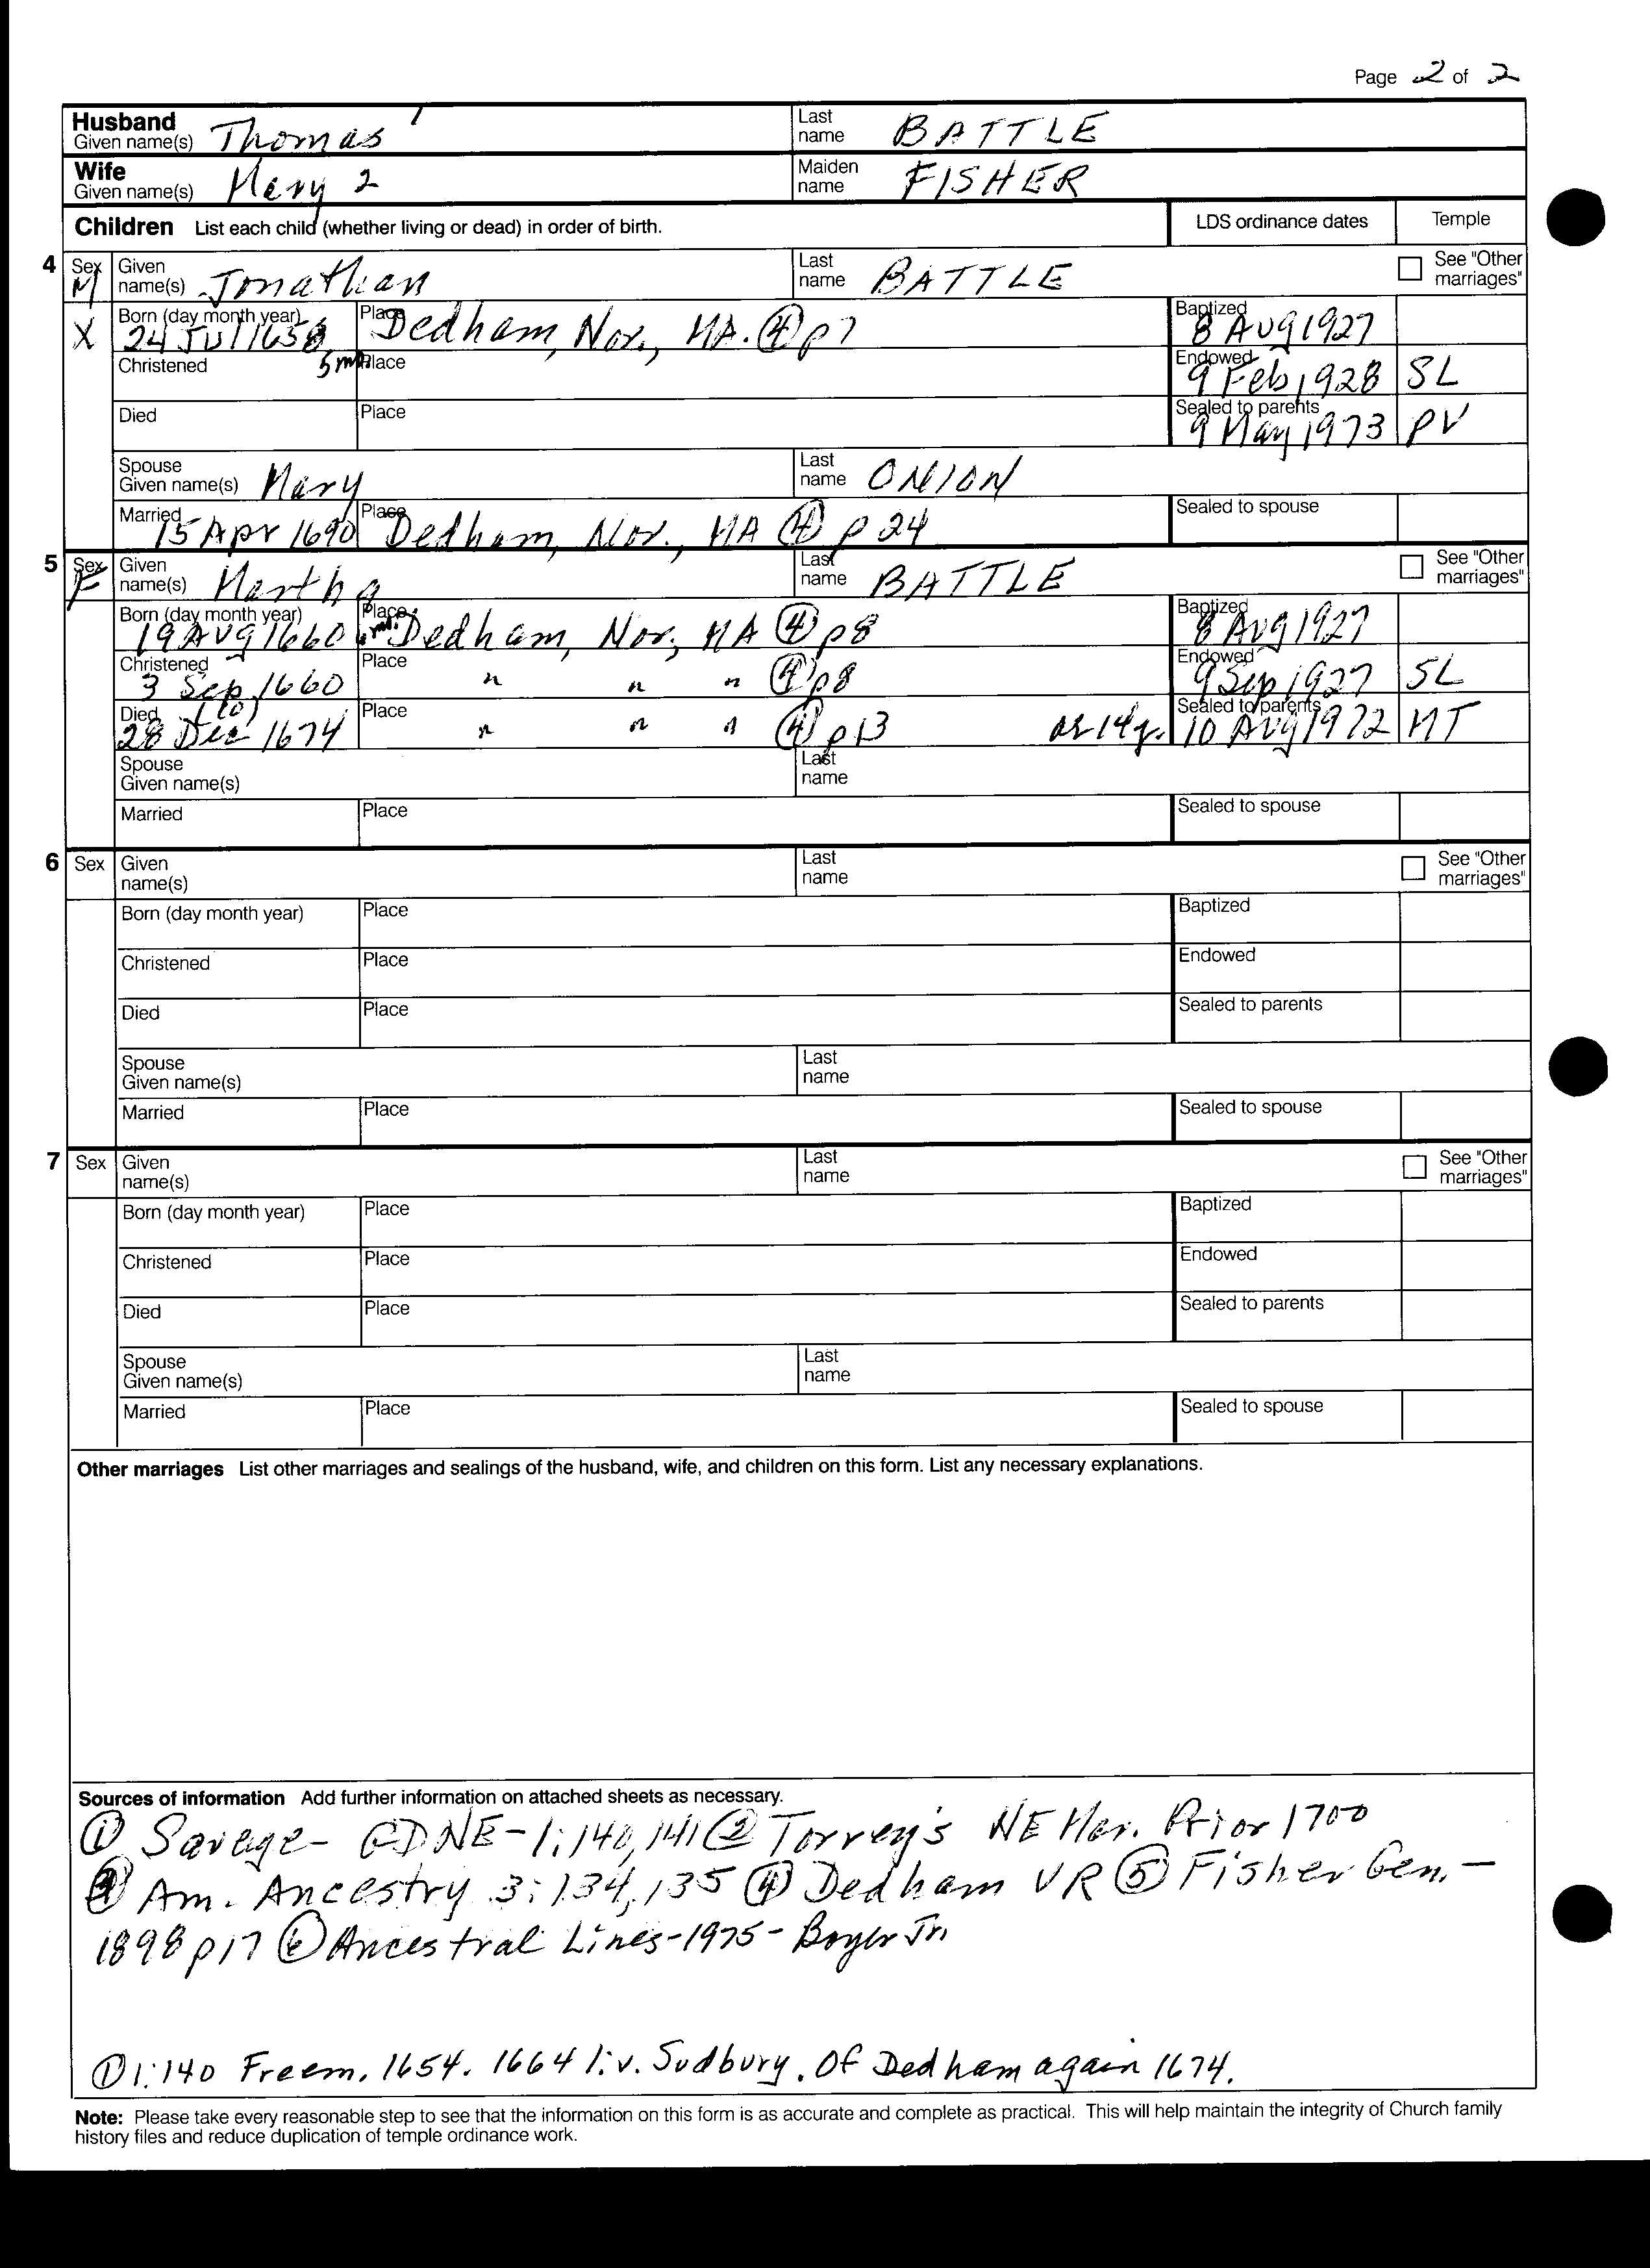 Page 2 of 2
Husband Given name(s) Thomas 1 Last name BATTLE
Wife Given name(s) Mary 2 Maiden name FISHER
Children List each child (whether living or dead) in order of birth. LDS ordinance dates Temple
4 Sex M Given name(s) Jonathan Last name BATTLE See "Other marriages"
X Born (day month year) 24 Jul 1658 5 m Place Dedham, Nor., MA. ④ p7 Baptized 8 AUG 1927
Christened Place Endowed 9 Feb 1928 SL
Died Place Sealed to parents 9 May 1973 PV
Spouse Given name(s) Mary Last name ONION
Married 15 Apr 1690 Place Dedham, Nor., MA ④ p 24 Sealed to spouse
5 Sex F Given name(s) Martha Last name BATTLE See "Other marriages"
Born (day month year) 19 AUG 1660 Place Dedham, Nor, MA ④ p8 Baptized 8 AUG 1927
Christened 3 Sep 1660 Place " " " ④ p8 Endowed 9 Sep 1927 SL
Died 28 Dec (10) 1674 Place " " " ④ p13 as 14y. Sealed to parents 10 AUG 1972 MT
Spouse Given name(s) Last name
Married Place Sealed to spouse
6 Sex Given name(s) Last name See "Other marriages"
Born (day month year) Place Baptized
Christened Place Endowed
Died Place Sealed to parents
Spouse Given name(s) Last name
Married Place Sealed to spouse
7 Sex Given name(s) Last name See "Other marriages"
Born (day month year) Place Baptized
Christened Place Endowed
Died Place Sealed to parents
Spouse Given name(s) Last name
Married Place Sealed to spouse
Other marriages List other marriages and sealings of the husband, wife, and children on this form. List any necessary explanations.
Sources of information Add further information on attached sheets as necessary.
① Savage - GDNE - 1:140,141 ② Torrey's NE Mar. Prior 1700
③ Am. Ancestry 3:134,135 ④ Dedham VR ⑤ Fisher Gen. -
1898 p17 ⑥ Ancestral Lines-1975-Boyer Jr.
① 1:140 Freem. 1654. 1664 liv. Sudbury. Of Dedham again 1674.
Note: Please take every reasonable step to see that the information on this form is as accurate and complete as practical. This will help maintain the integrity of Church family
history files and reduce duplication of temple ordinance work.